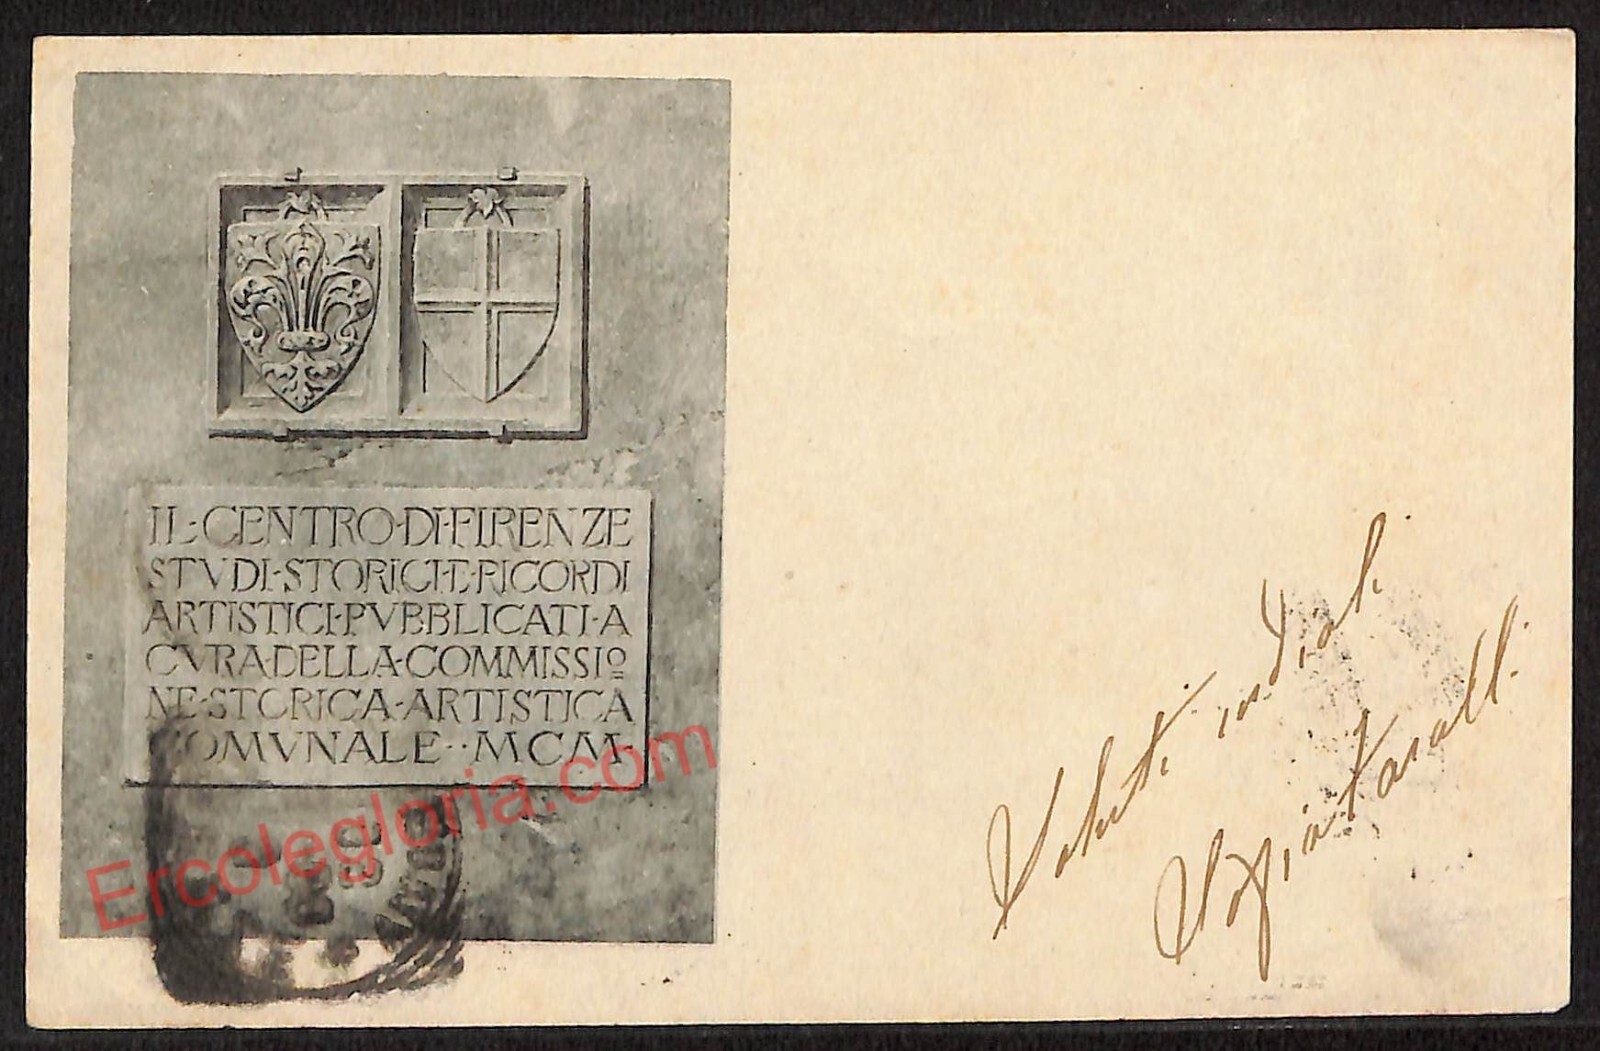 IL·CENTRO·DI·FIRENZE
STVDI·STORICI·E·RICORDI
ARTISTICI·PVBBLICATI·A
CVRA·DELLA·COMMISSIO
NE·STORICA·ARTISTICA
COMVNALE··MCM·
Ercolegloria.com
Saluti cordiali